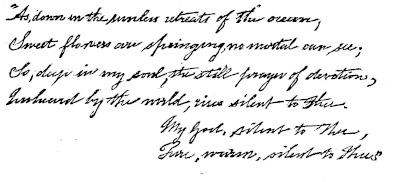 "As, down in the sunless retreats of the ocean,
Sweet flowers are springing, no mortal can see;
So, deep in my soul, the still prayer of devotion,
Unheard by the world, rises silent to Thee.
My God, silent to Thee,
Pure, warm, silent to Thee"